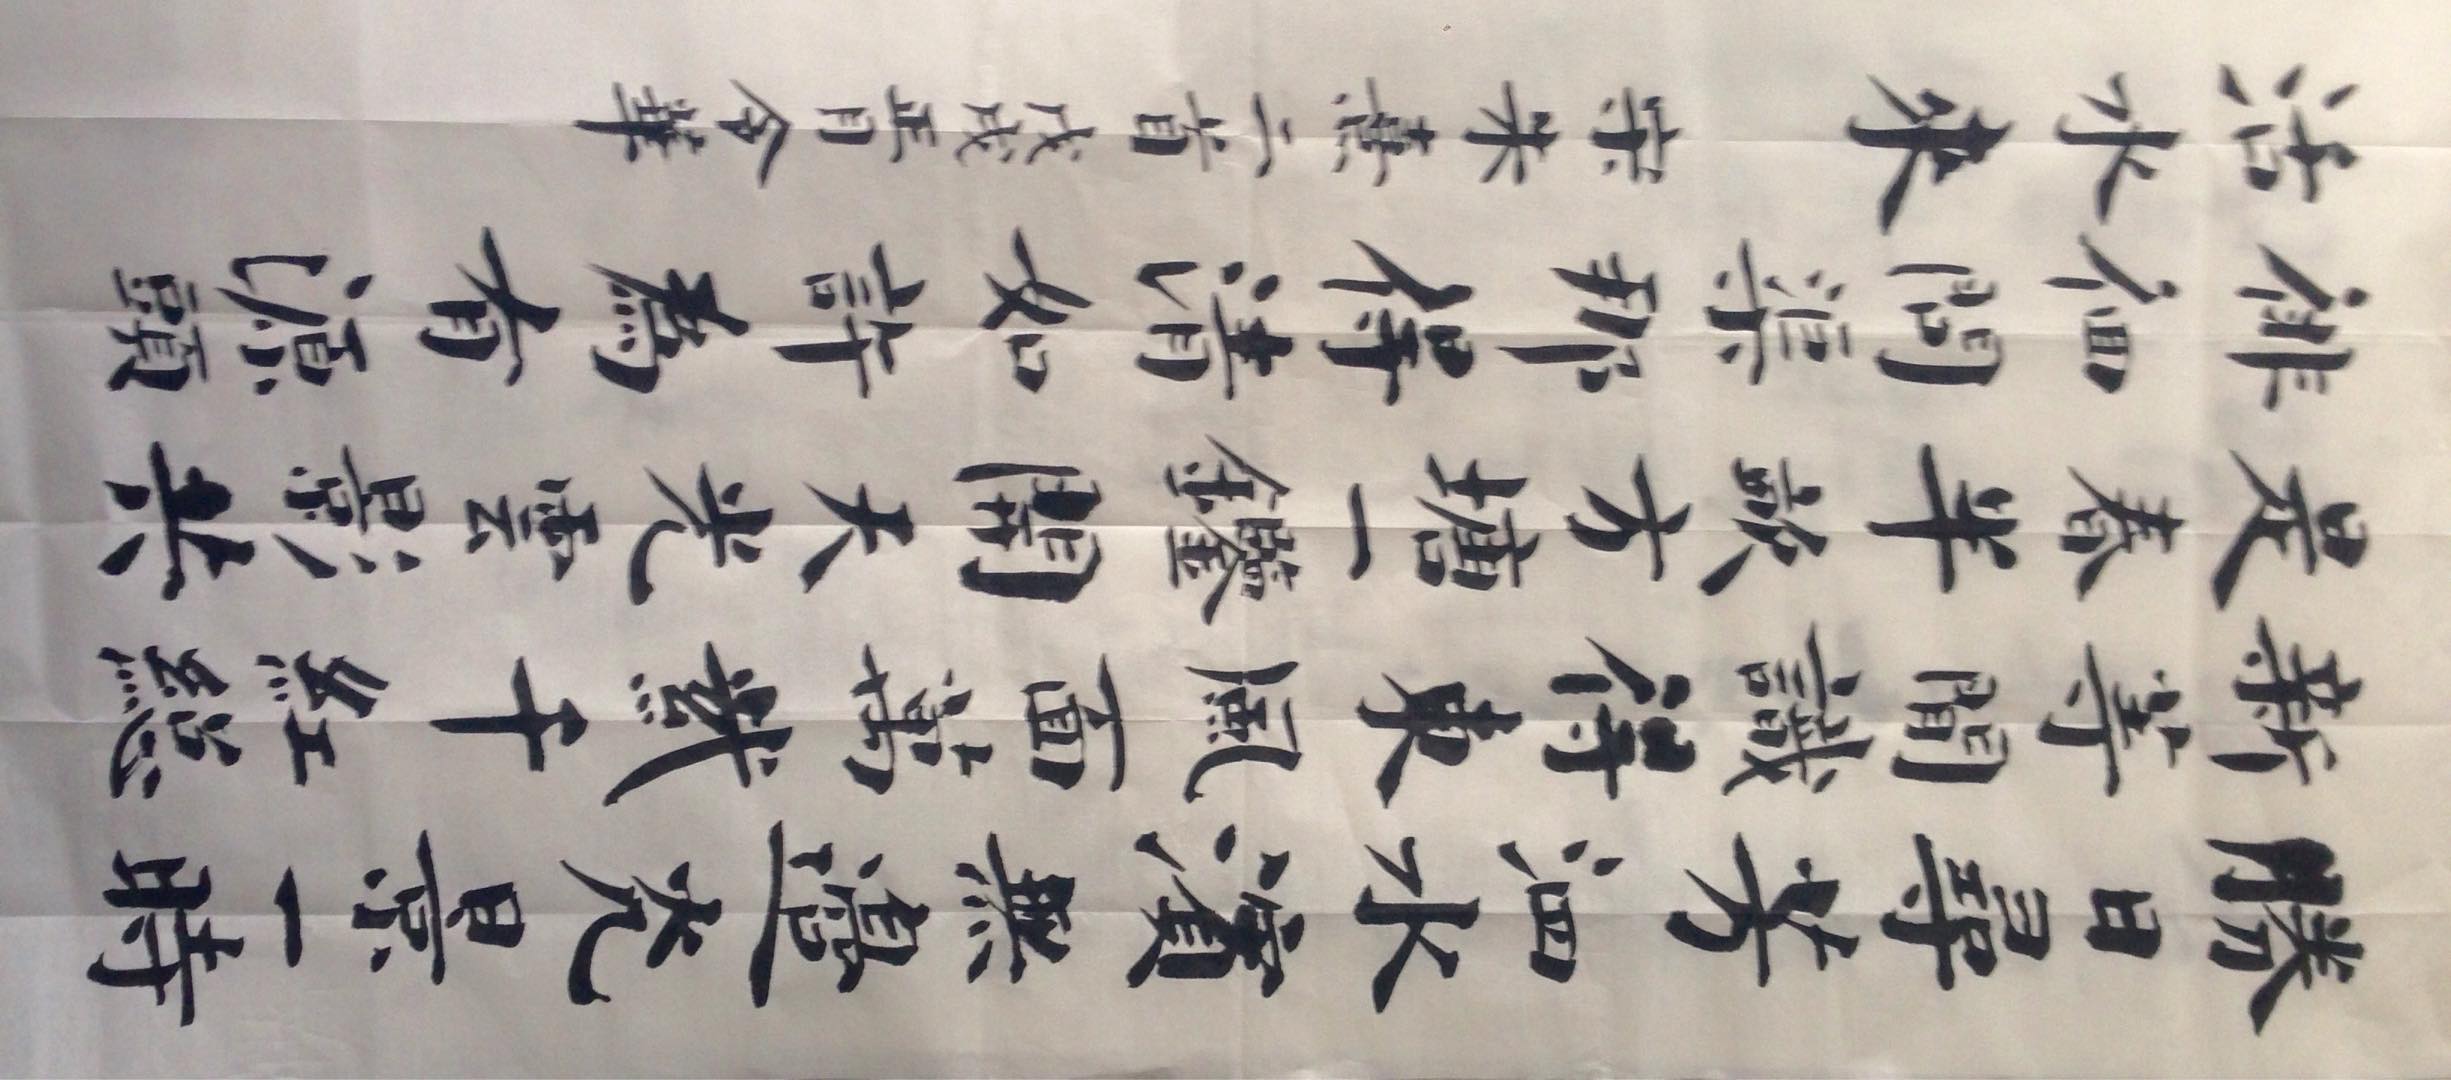 勝日尋芳泗水濱無邊光景一時
新等閒識得東風面萬紫千紅總
是春半畝方塘一鑑開天光雲影共
徘徊問渠那得清如許為有源頭
活水來 宋朱熹二首戊戌正月令華